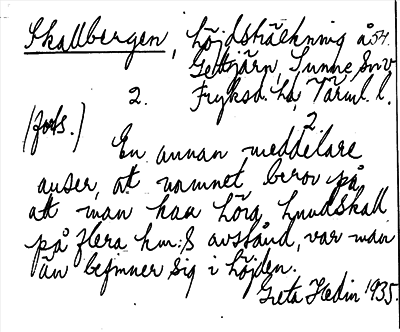 Skallbergen, höjdsträckning å st.
Gettjärn, Sunne sn v
2. Fryksd. hd, Värml. l.
(forts.) 2.
En annan meddelare
anser, att namnet beror på
att man kan höra hundskall
på flera km:s avstånd, var man
än befinner sig i höjden.
Greta Hedin 1935.